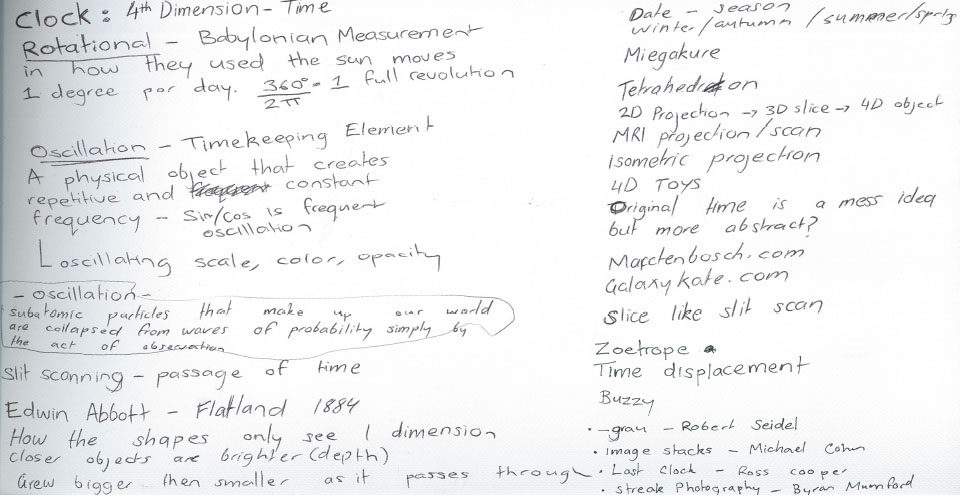 Clock: 4th Dimension - Time
Rotational - Babylonian Measurement
in how they used the sun moves
1 degree per day. 360°/2π = 1 full revolution
Oscillation - Timekeeping Element
A physical object that creates
repetitive and constant
frequency - Sin/Cos is frequent
oscillation
oscillating scale, color, opacity
- oscillation -
subatomic particles that make up our world
are collapsed from waves of probability simply by
the act of observation
Slit scanning - passage of time
Edwin Abbott - Flatland 1884
How the shapes only see 1 dimension
closer objects are brighter (depth)
Grew bigger then smaller as it passes through
Date - season
winter/autumn/summer/spring
Miegakure
Tetrahedron
2D Projection → 3D slice → 4D object
MRI projection/scan
Isometric projection
4D Toys
Original time is a mess idea
but more abstract?
Marctenbosch.com
Galaxykate.com
Slice like slit scan
Zoetrope
Time displacement
Buzzy
• -grau - Robert Seidel
• Image stacks - Michael Cohen
• Last Clock - Ross cooper
• streak Photography - Byran Mumford